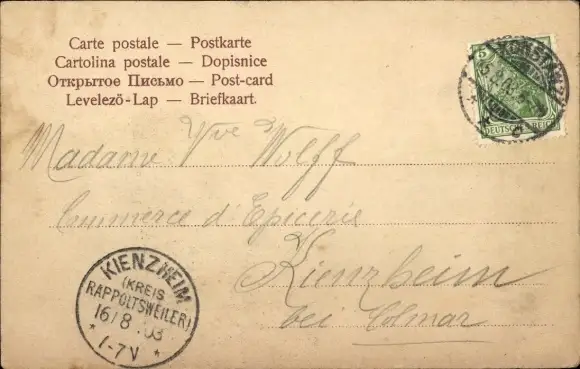 Carte postale — Postkarte
Cartolina postale — Dopisnice
Открытое Письмо — Post-card
Levelező-Lap — Briefkaart.
5
DEUTSCHES REICH
Madame Vve Wolff
Commerce d'Epicerie
Kienzheim
bei Colmar
KIENZHEIM
(KREIS
RAPPOLTSWEILER)
16/8 03
* 1-7V *